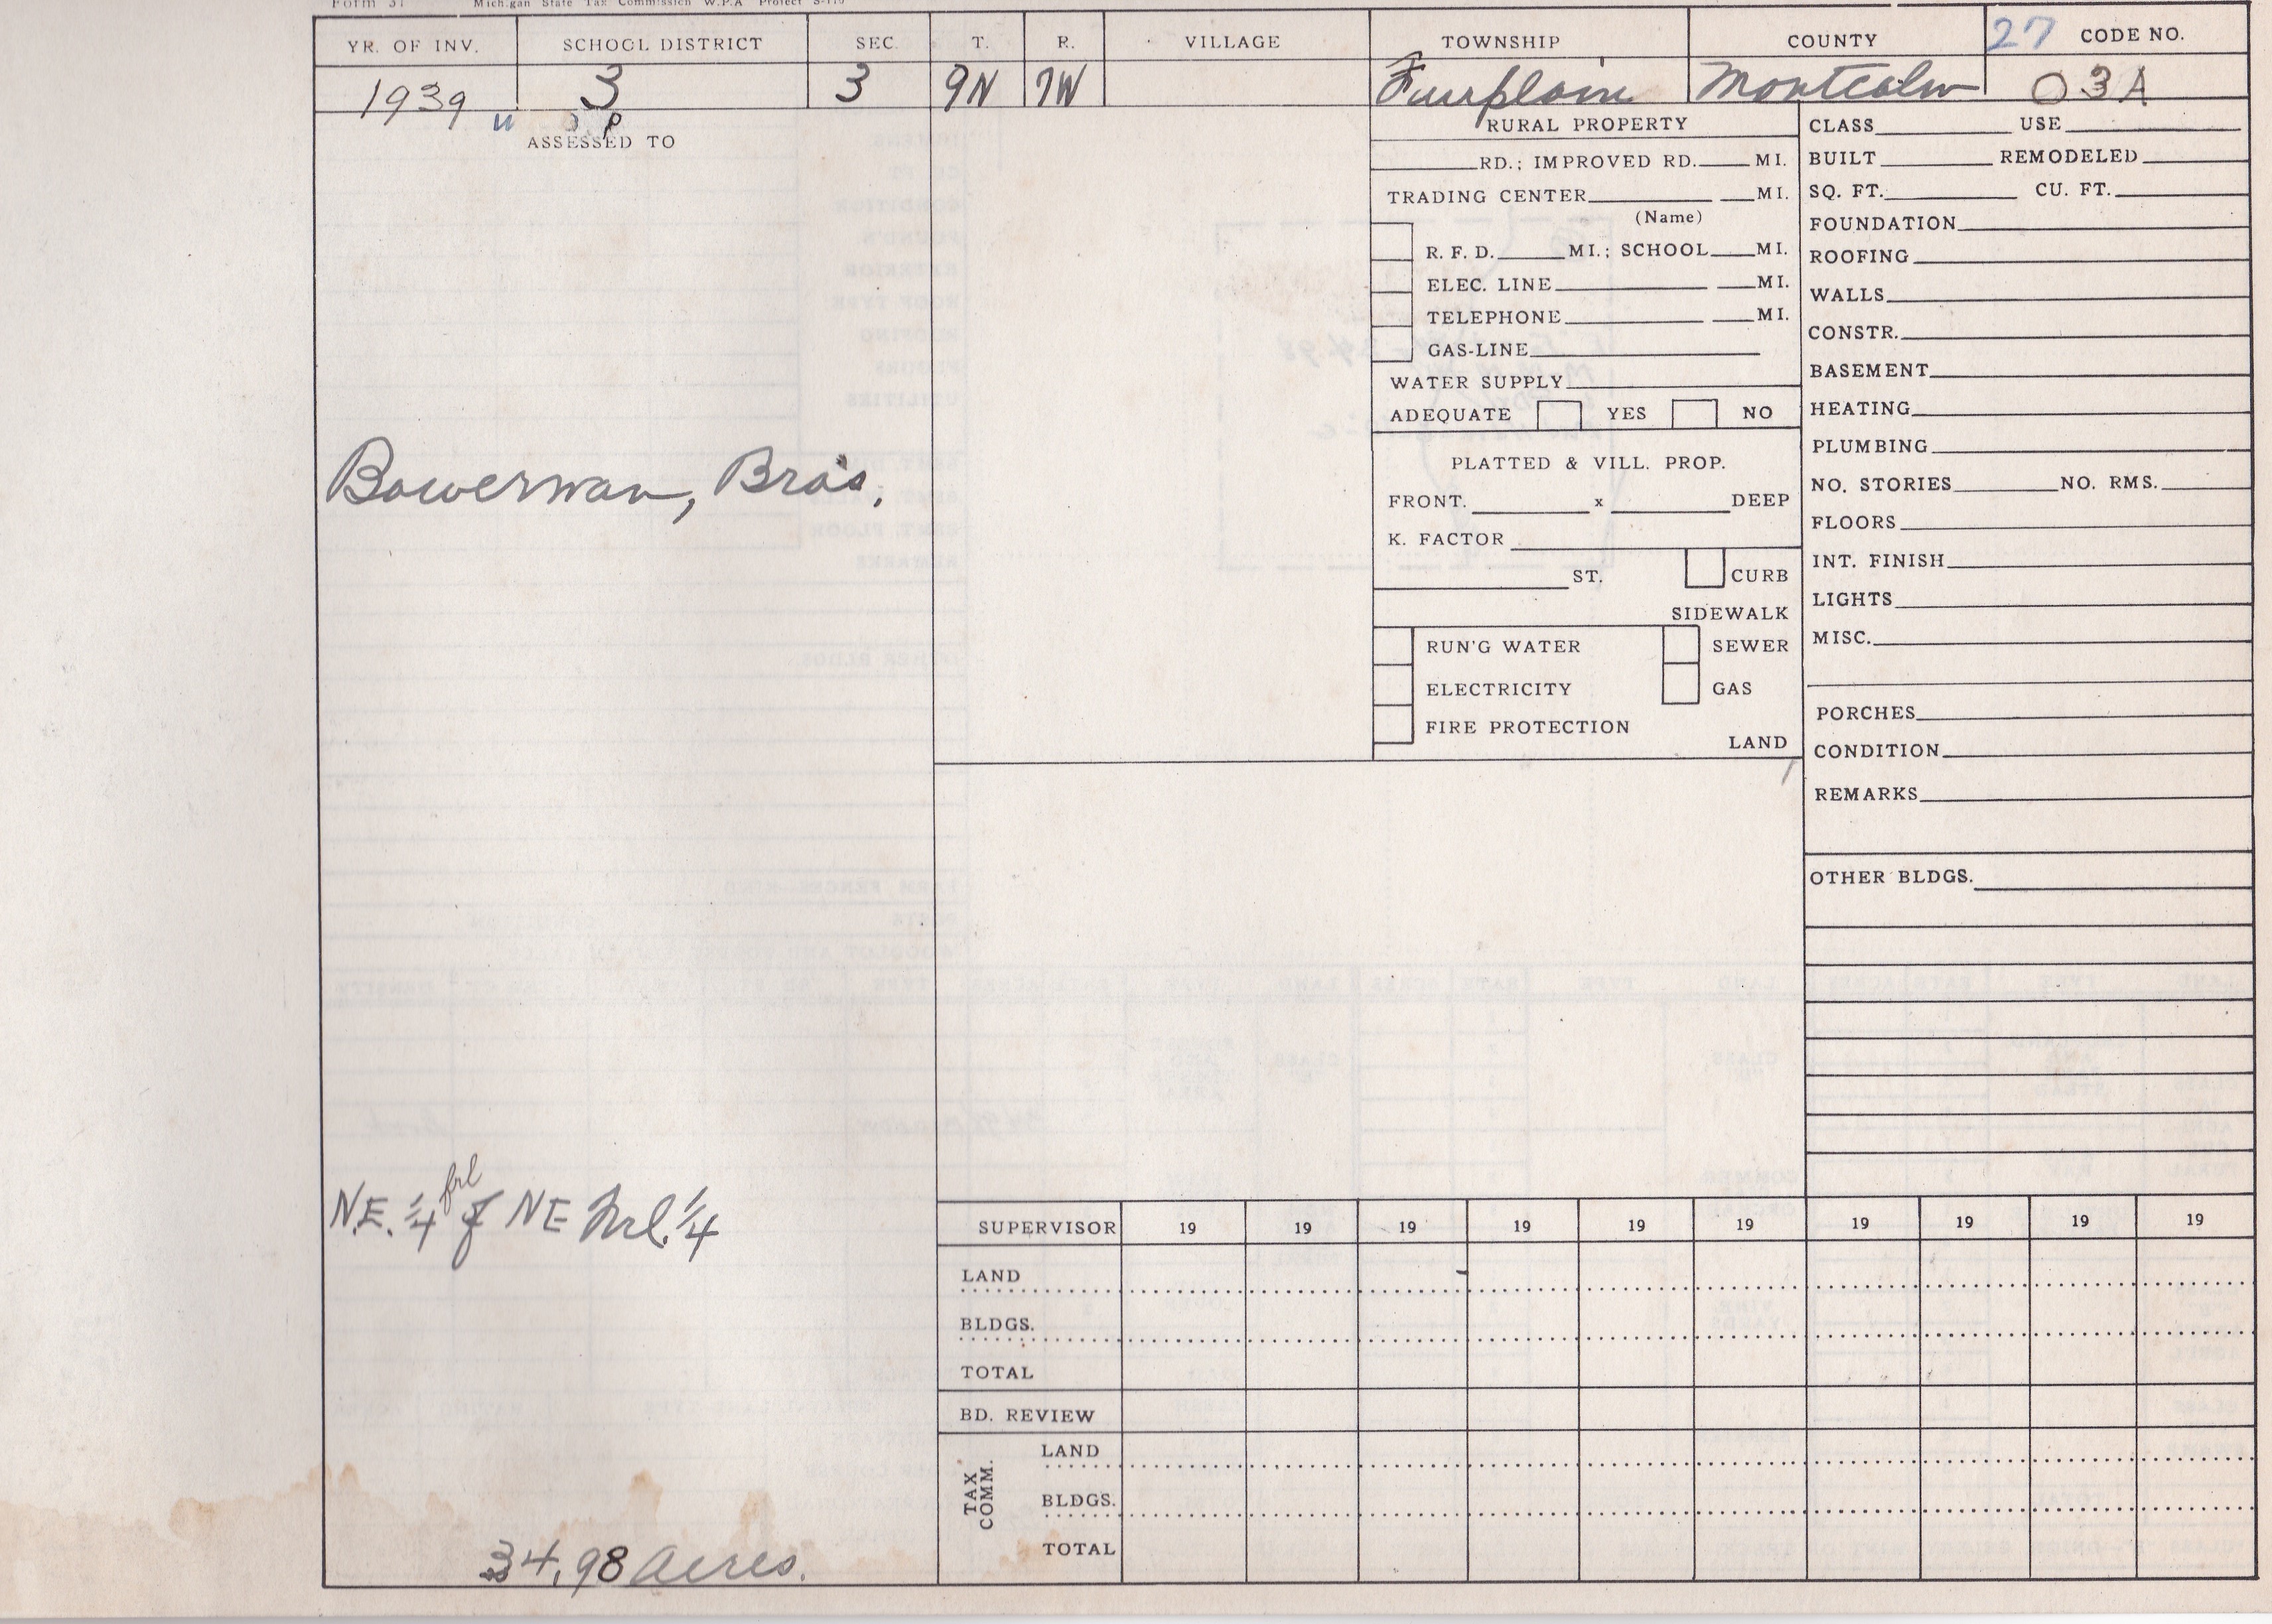 Form 37 Michigan State Tax Commission W.P.A Project S-119
YR. OF INV. SCHOOL DISTRICT SEC. T. R. VILLAGE TOWNSHIP COUNTY 27 CODE NO.
1939 3 3 9N 7W Fairplain Montcalm 03A
ASSESSED TO
Bowerman, Bros.
N.E. 1/4 frl of NE frl. 1/4
34.98 acres.
RURAL PROPERTY
RD.; IMPROVED RD. MI.
TRADING CENTER MI.
(Name)
R. F. D. MI.; SCHOOL MI.
ELEC. LINE MI.
TELEPHONE MI.
GAS-LINE
WATER SUPPLY
ADEQUATE YES NO
PLATTED & VILL. PROP.
FRONT. x DEEP
K. FACTOR
ST. CURB
SIDEWALK
RUN'G WATER SEWER
ELECTRICITY GAS
FIRE PROTECTION
LAND
CLASS USE
BUILT REMODELED
SQ. FT. CU. FT.
FOUNDATION
ROOFING
WALLS
CONSTR.
BASEMENT
HEATING
PLUMBING
NO. STORIES NO. RMS.
FLOORS
INT. FINISH
LIGHTS
MISC.
PORCHES
CONDITION
REMARKS
OTHER BLDGS.
SUPERVISOR 19 19 19 19 19 19 19 19 19 19
LAND
BLDGS.
TOTAL
BD. REVIEW
TAX COMM.
LAND
BLDGS.
TOTAL